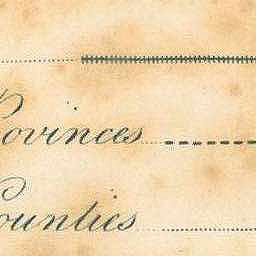 Provinces
Counties